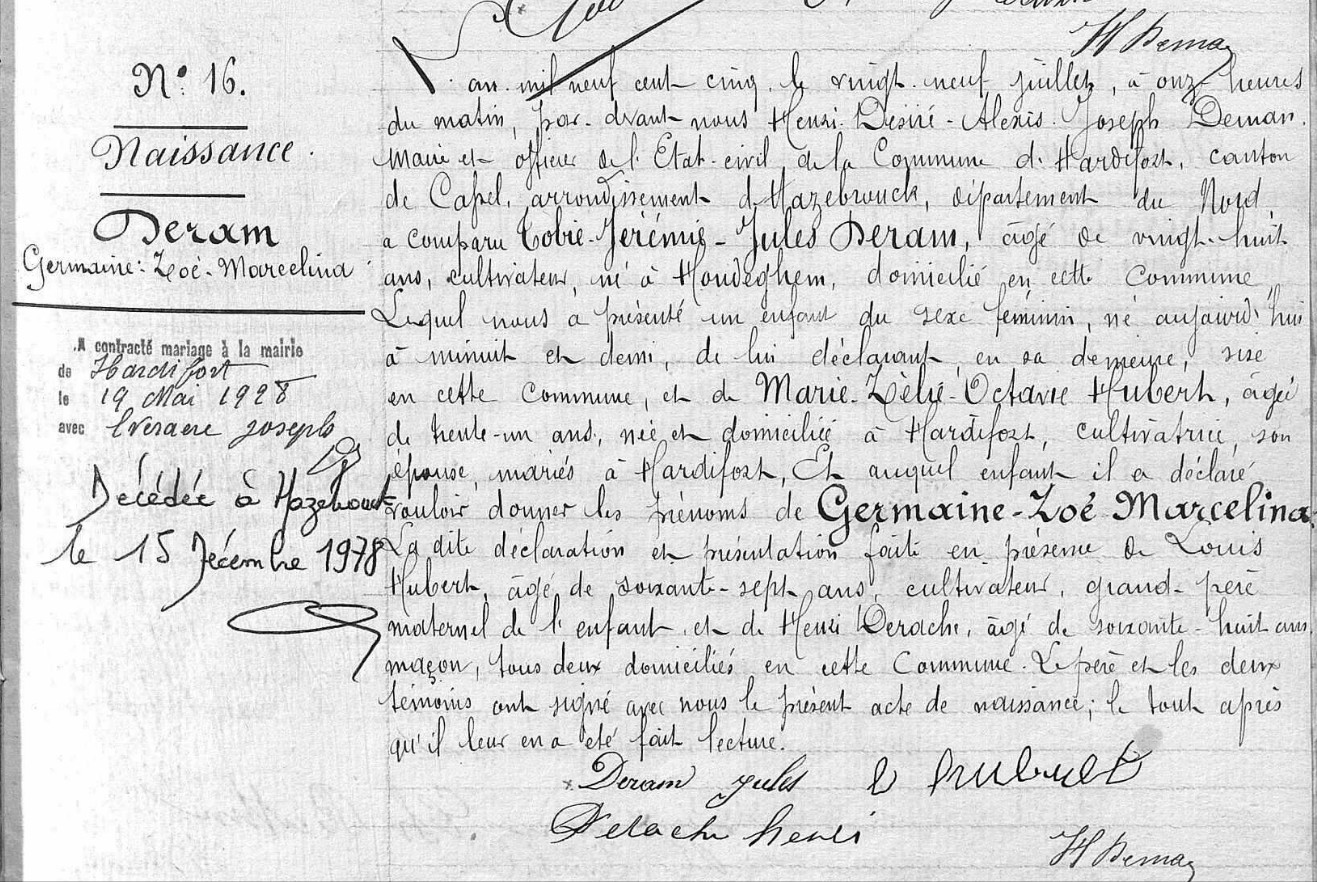 H Deman
N° 16.
Naissance.
Deram
Germaine-Zoé-Marcelina
A contracté mariage à la mairie
de Hardifort
le 19 Mai 1928
avec Joseph
Décédée à Hazebrouck
le 15 Décembre 1978
L'an mil neuf cent cinq, le vingt-neuf juillet, à onze heures
du matin, par-devant nous Henri-Désiré-Alexis-Joseph Deman.
Maire et officier de l'État-civil de la Commune d'Hardifort, canton
de Cassel, arrondissement d'Hazebrouck, département du Nord,
a comparu Tobie-Jérémie-Jules Deram, âgé de vingt-huit
ans, cultivateur, né à Hondeghem, domicilié en cette Commune,
Lequel nous a présenté un enfant du sexe féminin, né aujourd'hui
à minuit et demi, de lui déclarant, en sa demeure, sise
en cette Commune, et de Marie-Zélie-Octavie Hubert, âgée
de trente-un ans, née et domiciliée à Hardifort, cultivatrice, son
épouse, mariés à Hardifort, Et auquel enfant il a déclaré
vouloir donner les prénoms de Germaine-Zoé Marcelina
La dite déclaration et présentation faite en présence de Louis
Hubert, âgé de soixante-sept ans, cultivateur, grand-père
maternel de l'enfant, et de Henri Derache, âgé de soixante-huit ans,
maçon, tous deux domiciliés en cette Commune. Le père et les deux
témoins ont signé avec nous le présent acte de naissance; le tout après
qu'il leur en a été fait lecture.
Deram jules L hubert
Derache henri
H Deman